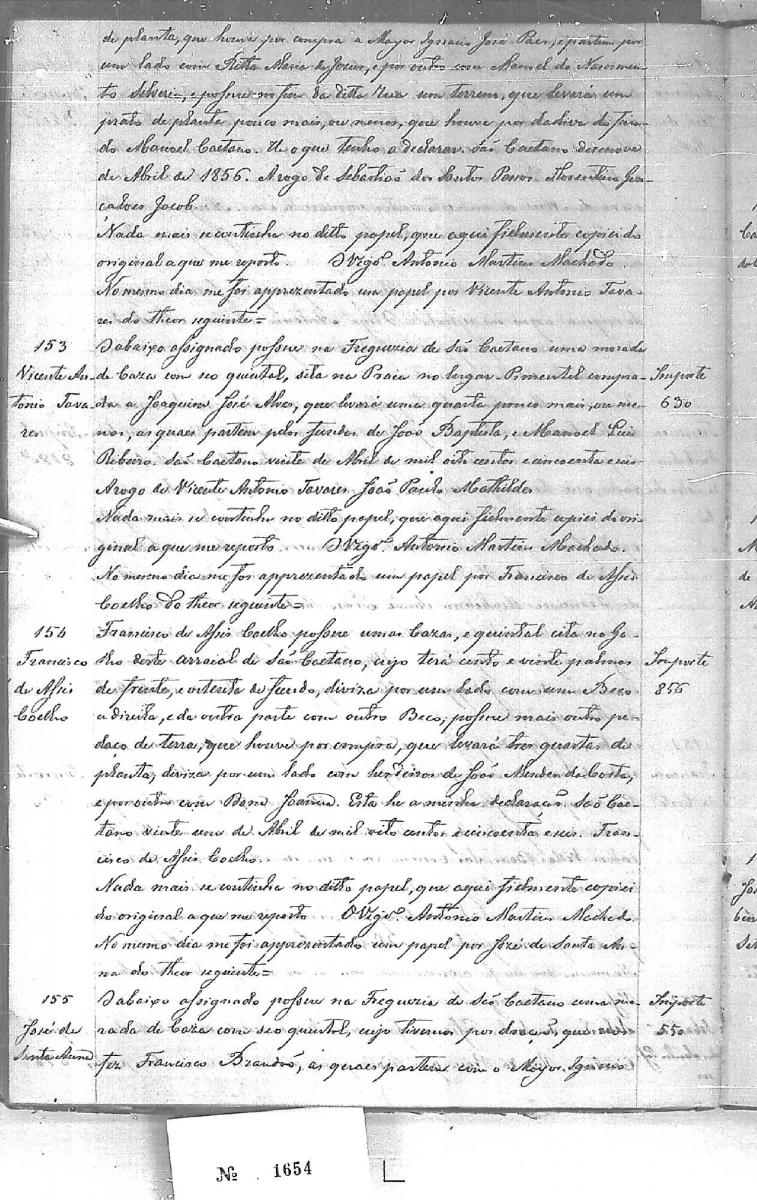 de planta, que houve por compra a Mayor Ignacio José Paes, e partem por
um lado com Ritta Maria de Jezus, e por outro com Manoel do Nascimen-
to Silveira, e possue no fim da ditta rua um terreno, que levará um
prato de planta pouco mais, ou menos, que houve por dadiva do fina-
do Manoel Caetano. He o que tenho a declarar. São Caetano desenove
de Abril de 1856. Arogo de Sebastião dos Santos Passos Florentino Gon-
çalves Jacob
Nada mais se continha no ditto papel, que aqui fielmente copiei do
original a que me reporto. O Vigº Antonio Martins Machado.
No mesmo dia me foi apprezentado um papel por Vicente Antonio Tava-
res do theor seguinte=
153
Vicente An-
tonio Tava-
res
O abaixo assignado possue na Freguezia de São Caetano uma morada
de Caza com seo quintal, sita na Praia no lugar Pimentel compra-
da a Joaquim José Alves, que levará uma quarta pouco mais, ou me-
nos, as quaes partem pelos fundos de João Baptista, e Manoel Luis
Ribeiro. São Caetano vinte de Abril de mil oito centos e cincoenta e seis
Arogo de Vicente Antonio Tavares João Paulo Mathildes
Importe
630
Nada mais se continha no ditto papel, que aqui fielmente copiei do ori-
ginal a que me reporto O Vigº Antonio Martins Machado.
No mesmo dia me foi apprezentado um papel por Francisco de Assis
Coelho do theor seguinte=
154
Francisco
de Assis
Coelho
Francisco de Assis Coelho possue umas Cazas, e quintal cita no
deste arraial de São Caetano, cujo terá cento e vinte palmos
de frente, e outenta de fundo, diviza por um lado com um Beco
a direita, e da outra parte com outro Beco, possue mais outro pe-
daço de terra, que houve por compra, que levará tres quartas de
planta, diviza por um lado com herdeiros de João Mendes da Costa,
e por outro com Joanna. Esta he a minha declaração. São Cae-
tano vinte um de Abril de mil oito centos e cincoenta e seis. Fran-
cisco de Assis Coelho.
Importe
856
Nada mais se continha no ditto papel, que aqui fielmente copiei
do original a que me reporto O Vigº Antonio Martins Machado.
No mesmo dia me foi apprezentado um papel por José de Santa An-
na do theor seguinte=
155
José de
Santa Anna
O abaixo assignado possue na Freguezia de São Caetano uma mo-
rada de Caza com seo quintal, cujo tivemos por doação, que nos
fez Francisco Brandão, as quaes partem com o Mayor Ignacio
Importe
550
Nº 1654